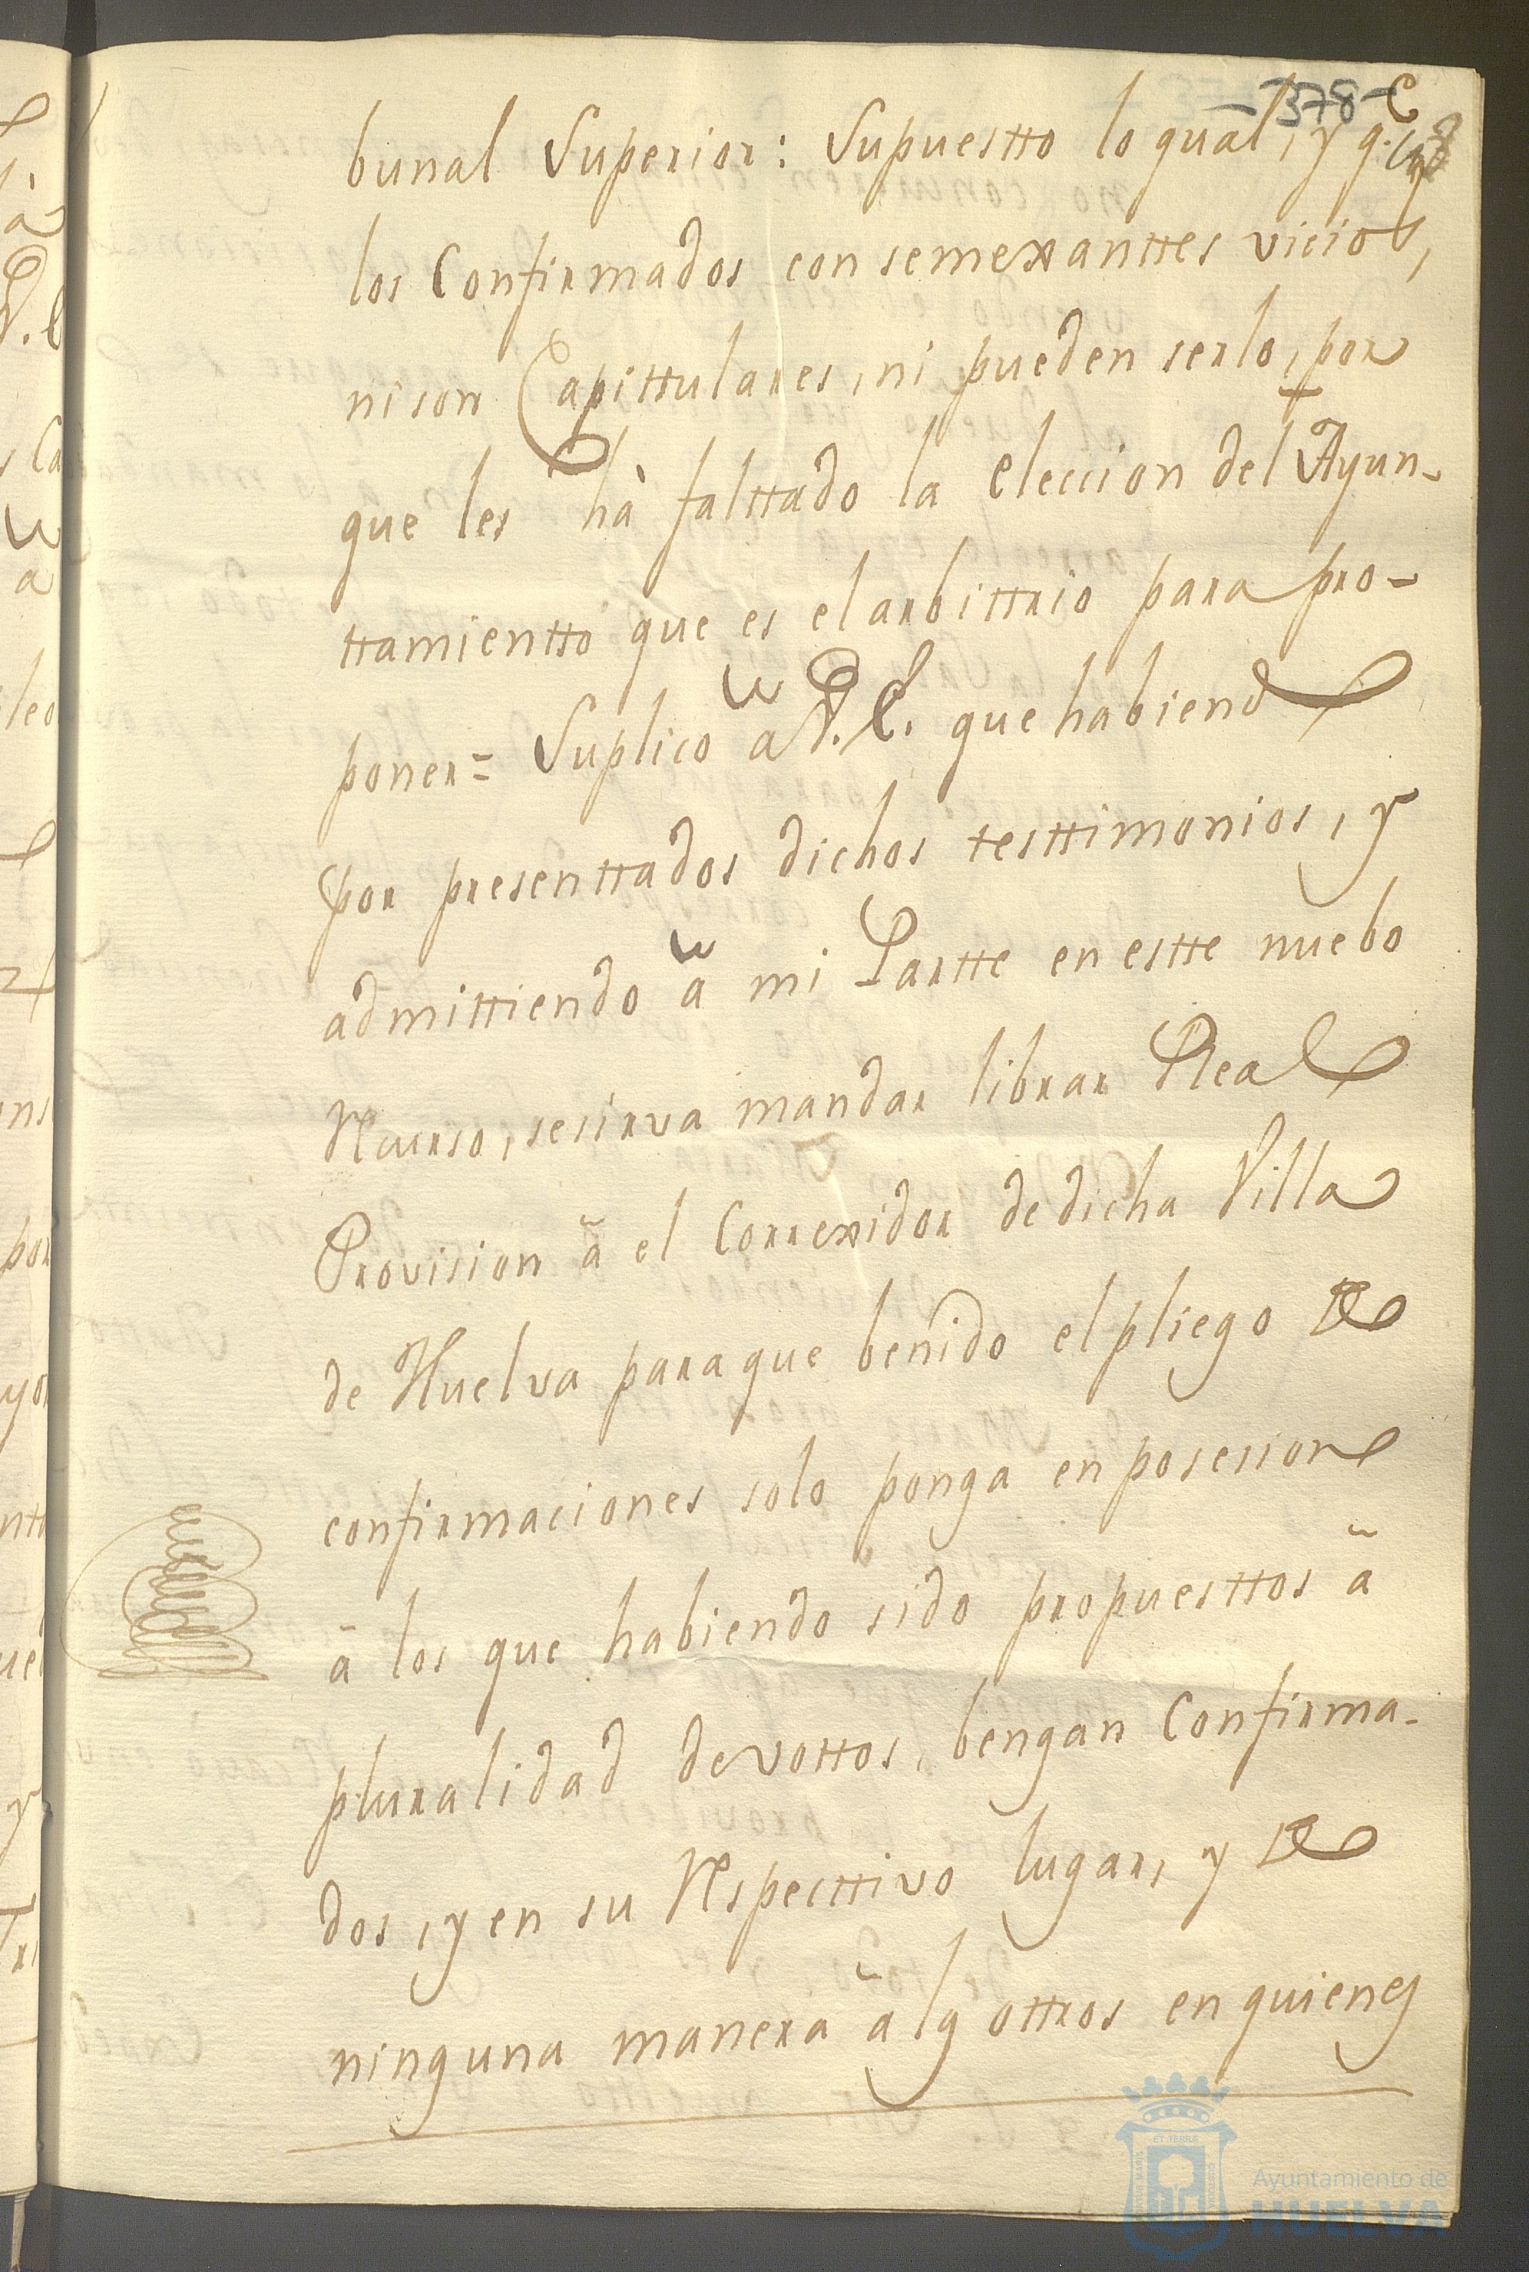 -378-
bunal Superior: Supuestto lo qual, y q.e
los Confirmados con semexanttes vicios,
ni son Capittulares, ni pueden serlo, por
que les hà falttado la eleccion del Ayun-
ttamientto que es el arbittrio para pro-
poner= Suplico a V.E. que habiendo
por presenttados dichos testtimonios, y
admittiendo ã mi Partte en estte nuebo
Recurso, se sirva mandar librar Real
Provision ã el Correxidor de dicha Villa
de Huelva para que benido el pliego de
confirmaciones solo ponga en posesion
ã los que habiendo sido propuesttos ã
pluralidad de vottos, bengan Confirma-
dos, y en su Respecttivo lugar, y de
ninguna manera ã los ottros en quienes
Ayuntamiento de
HUELVA